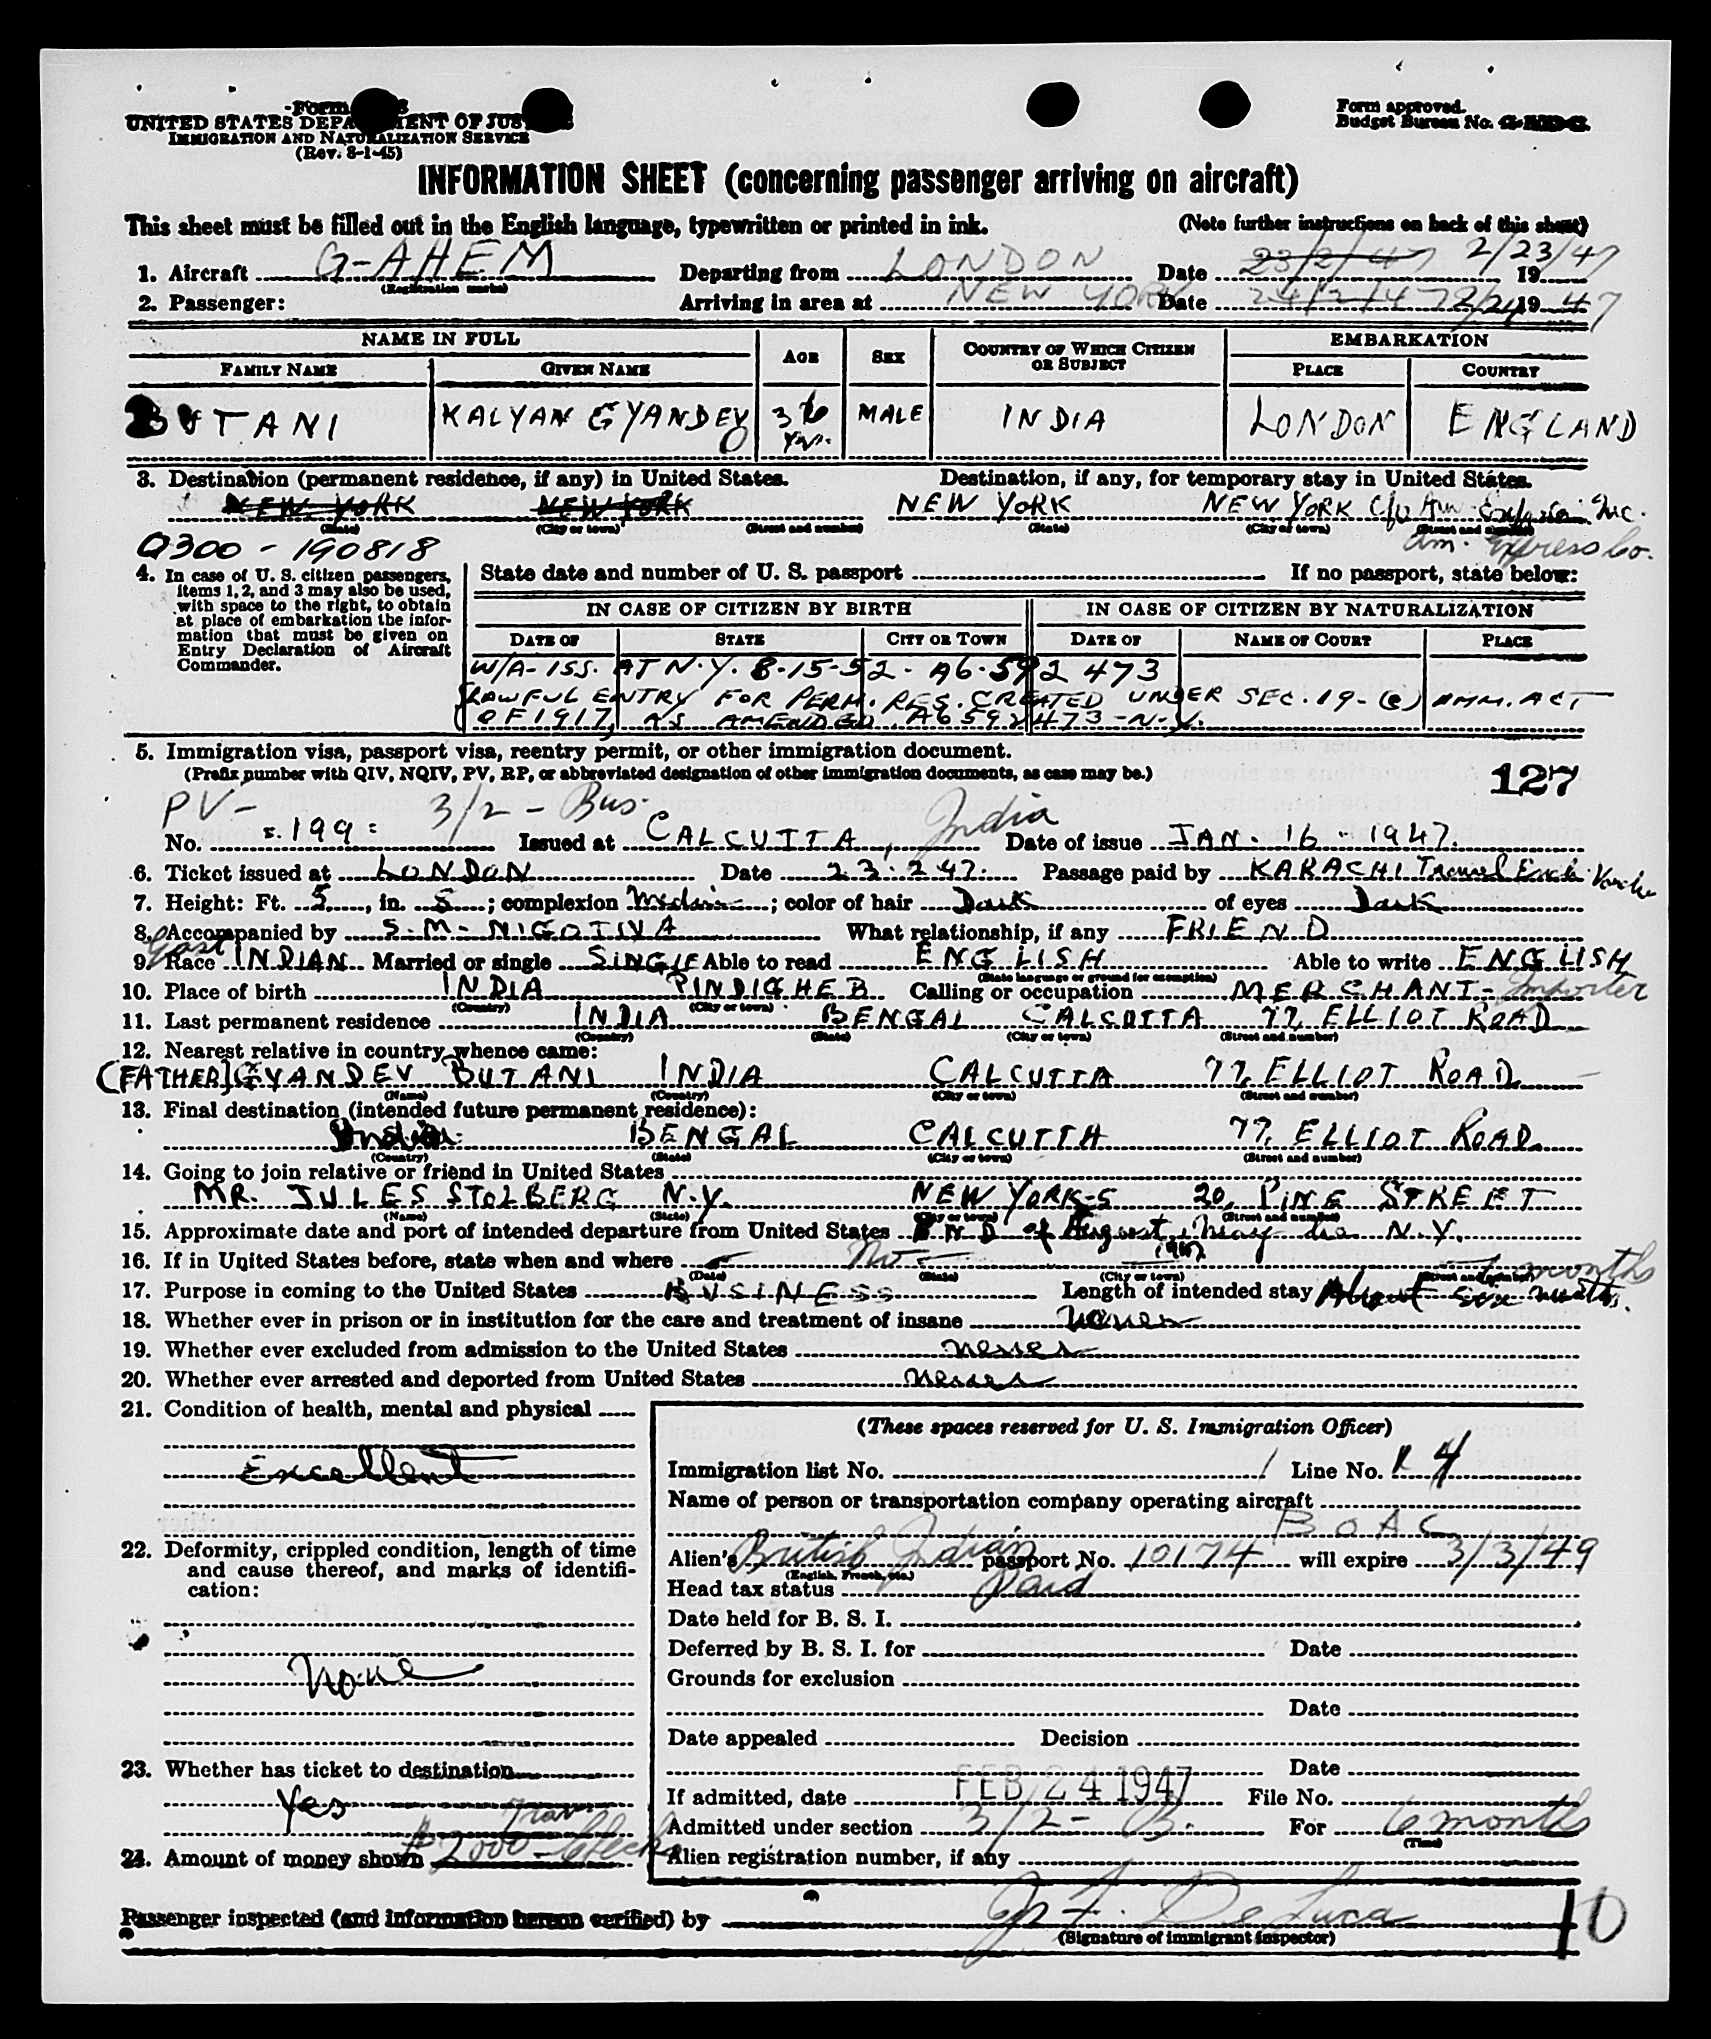 Form
UNITED STATES DEPARTMENT OF JUSTICE
IMMIGRATION AND NATURALIZATION SERVICE
(Rev. 8-1-45)
Form approved.
Budget Bureau No.
INFORMATION SHEET (concerning passenger arriving on aircraft)
This sheet must be filled out in the English language, typewritten or printed in ink. (Note further instructions on back of this sheet)
1. Aircraft G-AHEM Departing from LONDON Date 23/2/47 2/23/47 19
(Registration marks)
2. Passenger: Arriving in area at NEW YORK Date 24/2/47 2/24 19 47
NAME IN FULL AGE SEX COUNTRY OF WHICH CITIZEN OR SUBJECT EMBARKATION
FAMILY NAME GIVEN NAME PLACE COUNTRY
BUTANI KALYAN GYANDEV 36 yrs. MALE INDIA LONDON ENGLAND
3. Destination (permanent residence, if any) in United States. Destination, if any, for temporary stay in United States.
NEW YORK NEW YORK NEW YORK NEW YORK C/o Am. Express Inc.
(State) (City or town) (Street and number) (State) (City or town) (Street and number)
Am. Express Co.
0300 - 190818
4. In case of U. S. citizen passengers, items 1, 2, and 3 may also be used, with space to the right, to obtain at place of embarkation the information that must be given on Entry Declaration of Aircraft Commander.
State date and number of U. S. passport If no passport, state below:
IN CASE OF CITIZEN BY BIRTH IN CASE OF CITIZEN BY NATURALIZATION
DATE OF STATE CITY OR TOWN DATE OF NAME OF COURT PLACE
W/A-ISS. AT N.Y. 8-15-52 - A6-592 473
LAWFUL ENTRY FOR PERM. RES. CREATED UNDER SEC. 19-(c) IMM. ACT
OF 1917, AS AMENDED A6592473-N.Y.
5. Immigration visa, passport visa, reentry permit, or other immigration document.
(Prefix number with QIV, NQIV, PV, RP, or abbreviated designation of other immigration documents, as case may be.)
127
PV- 3/2 - Bus.
No. 199 Issued at CALCUTTA, India Date of issue JAN. 16-1947.
6. Ticket issued at LONDON Date 23.2.47. Passage paid by KARACHI
7. Height: Ft. 5, in. 5; complexion Medium; color of hair Dark of eyes Dark
8. Accompanied by S.M. NIGOTIVA What relationship, if any FRIEND
East
9. Race INDIAN Married or single SINGLE Able to read ENGLISH Able to write ENGLISH
(State language or ground for exemption)
10. Place of birth INDIA PINDIGHEB Calling or occupation MERCHANT- Importer
(Country) (City or town)
11. Last permanent residence INDIA BENGAL CALCUTTA 77, ELLIOT ROAD
(Country) (State) (City or town) (Street and number)
12. Nearest relative in country whence came:
(FATHER) GYANDEV BUTANI INDIA CALCUTTA 77, ELLIOT ROAD
(Name) (Country) (City or town) (Street and number)
13. Final destination (intended future permanent residence):
India BENGAL CALCUTTA 77, ELLIOT ROAD.
(Country) (State) (City or town) (Street and number)
14. Going to join relative or friend in United States
MR. JULES STOLBERG N.Y. NEW YORK-5 20, PINE STREET
(Name) (State) (City or town) (Street and number)
15. Approximate date and port of intended departure from United States END of August, 1947 N.Y.
16. If in United States before, state when and where No
(Date) (State) (City or town) (Street and number)
months
17. Purpose in coming to the United States BUSINESS Length of intended stay About six months.
18. Whether ever in prison or in institution for the care and treatment of insane never
19. Whether ever excluded from admission to the United States never
20. Whether ever arrested and deported from United States never
21. Condition of health, mental and physical
Excellent
22. Deformity, crippled condition, length of time and cause thereof, and marks of identification:
None
23. Whether has ticket to destination
Yes
24. Amount of money shown $2000 - Trav. Checks
(These spaces reserved for U. S. Immigration Officer)
Immigration list No. 1 Line No. 4
Name of person or transportation company operating aircraft
BOAC
Alien's British Indian passport No. 10174 will expire 3/3/49
(English, French, etc.)
Head tax status Paid
Date held for B. S. I.
Deferred by B. S. I. for Date
Grounds for exclusion
Date
Date appealed Decision
Date
If admitted, date FEB 24 1947 File No.
Admitted under section 3/2 - B. For 6 months
(Time)
Alien registration number, if any
Passenger inspected (and information hereon verified) by F. De Luca
(Signature of immigrant inspector)
10